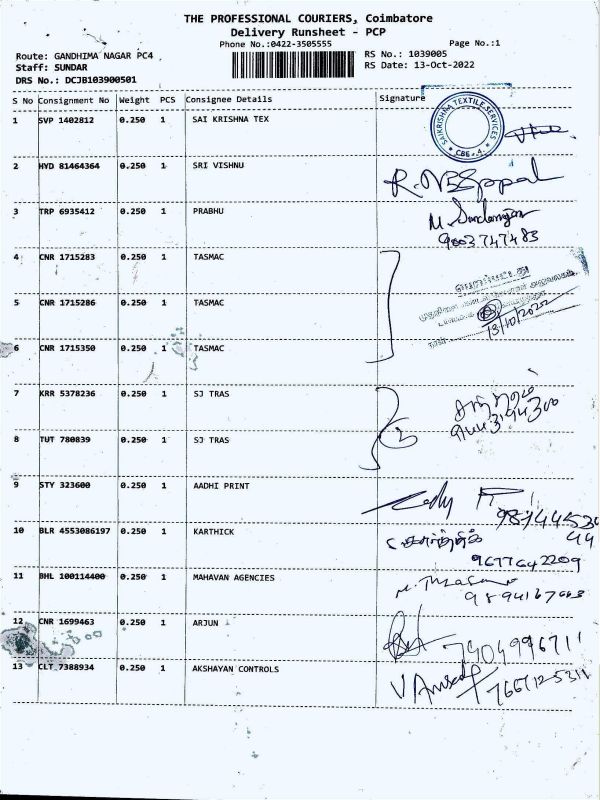 THE PROFESSIONAL COURIERS, Coimbatore
Delivery Runsheet - PCP
Phone No.:0422-3505555
Page No.:1
Route: GANDHIMA NAGAR PC4
RS No.: 1039005
Staff: SUNDAR
RS Date: 13-Oct-2022
DRS No.: DCJB103900501
S No Consignment No Weight PCS Consignee Details Signature
1 SVP 1402812 0.250 1 SAI KRISHNA TEX
SAIKRISHNA TEXTILE SERVICES
CBE-4.
2 HYD 81464364 0.250 1 SRI VISHNU
3 TRP 6935412 0.250 1 PRABHU
9003747483
4 CNR 1715283 0.250 1 TASMAC
5 CNR 1715286 0.250 1 TASMAC
13/10/2022
6 CNR 1715350 0.250 1 TASMAC
7 KRR 5378236 0.250 1 SJ TRAS
8 TUT 780839 0.250 1 SJ TRAS
9 STY 323600 0.250 1 AADHI PRINT
10 BLR 4553086197 0.250 1 KARTHICK
9677642209
11 BHL 100114400 0.250 1 MAHAVAN AGENCIES
12 CNR 1699463 0.250 1 ARJUN
7904996711
13 CLT 7388934 0.250 1 AKSHAYAN CONTROLS